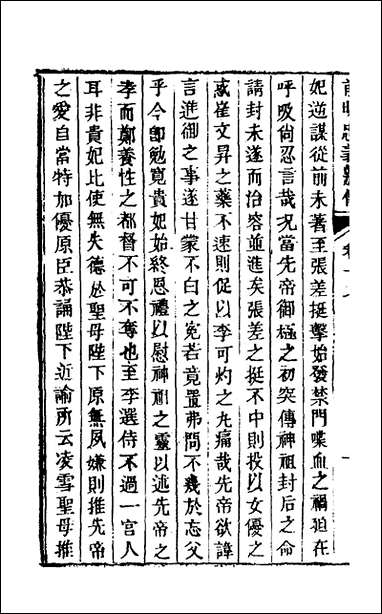 前明忠義別傳 卷十六
妃逆謀從前未著至張差挺擊始發禁門喋血之禍狼在
呼吸尙忍言哉况當先帝御極之初突傳神祖封后之命
請封未遂而治容並進矣張差之挺不中則投以女優之
惑崔文昇之藥不速則促以李可灼之九痛哉先帝欲諱
言進御之事遂甘蒙不白之冤若竟置弗問不幾於忘父
乎今卽勉寬貴妃始終恩禮以慰神祖之靈以述先帝之
孝而鄭養性之都督不可不奪也至李選侍不過一宮人
耳非貴妃比使無失德於聖母陛下原無夙嫌則推先帝
之愛自當特加優原臣恭誦陛下近諭所云凌雪聖母推